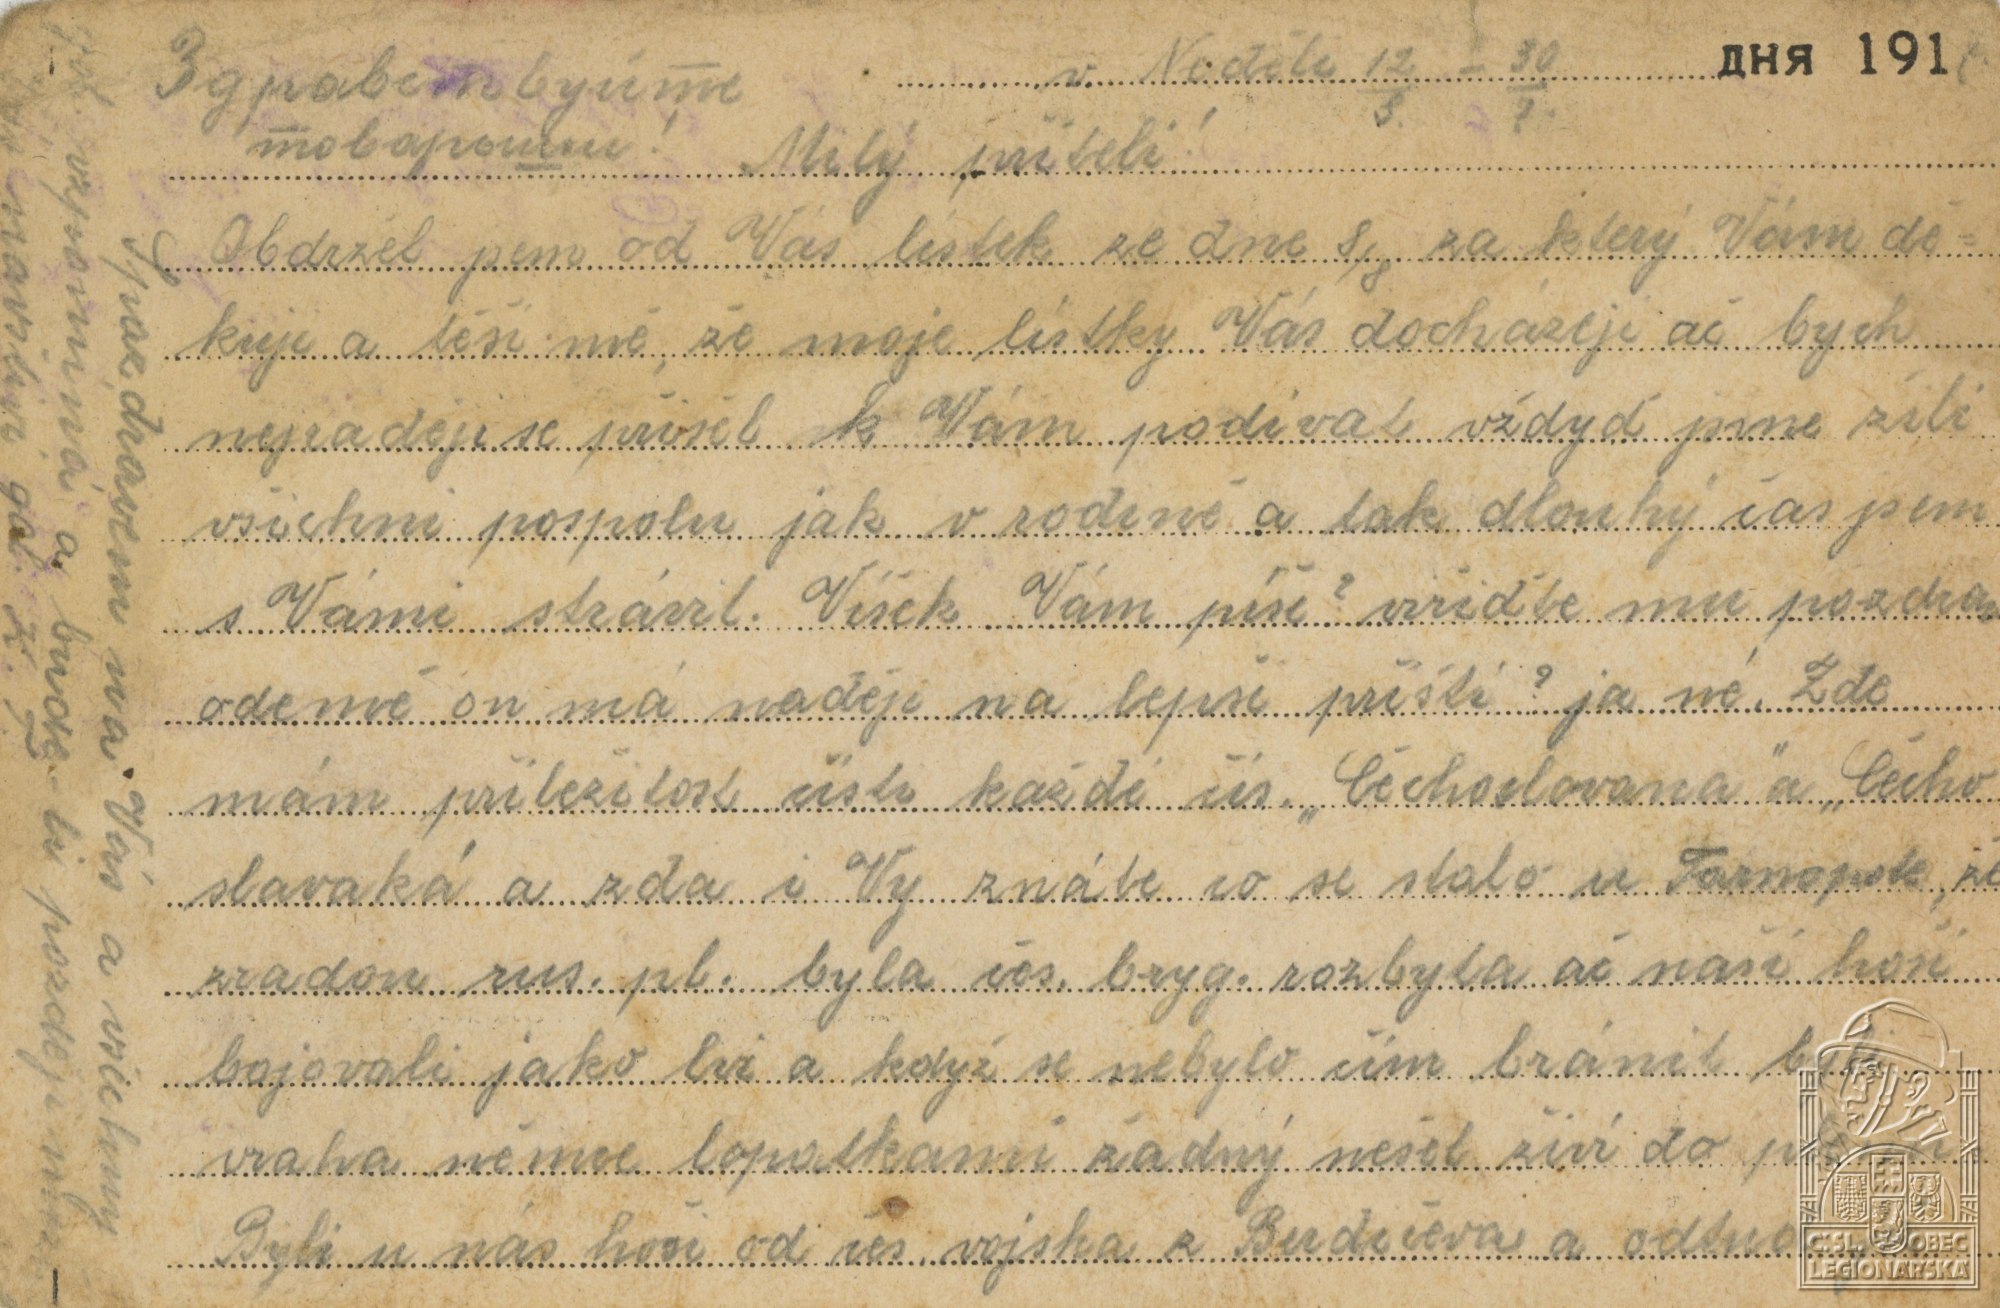 Здравствуйте v Neděli 12/8 - 30/7. дня 191
товарищи! Milý příteli!
Obdržel jsem od Vás lístek ze dne 8/8 za který Vám dě=
kuji a těší mě, že moje lístky Vás docházejí ač bych
nejraději se přišel k Vám podívat vždyď jsme žili
všichni pospolu jak v rodině a tak dlouhý čas jsem
s Vámi strávil. Víšek Vám píše? vyřiďte mu pozdrav
odemě on má naději na lepší příští? ja né. Zde
mám příležitost čísti každé čís. „Čechoslovana" a „Čecho
slavaká a zda i Vy znáte co se stalo u Tarnopole, že
zradou rus. pl. byla čes. bryg. rozbyta ač naši hoši
bojovali jako lvi a když se nebylo čím bránit byli
vraha němce lopatkami žadný nešel živí do
Byli u nás hoši od čes. vojska z Berdičeva a odtud
Spozdravem na Vás a všichny
vzpomíná a bude-li pozdeji
ČSL. OBEC
LEGIONÁŘSKÁ